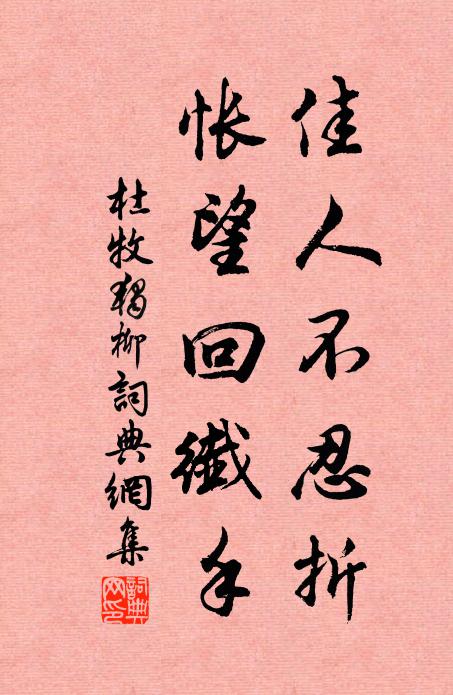 佳人不忍折
悵望回纖手
杜牧獨柳詞典網集
詞典网印